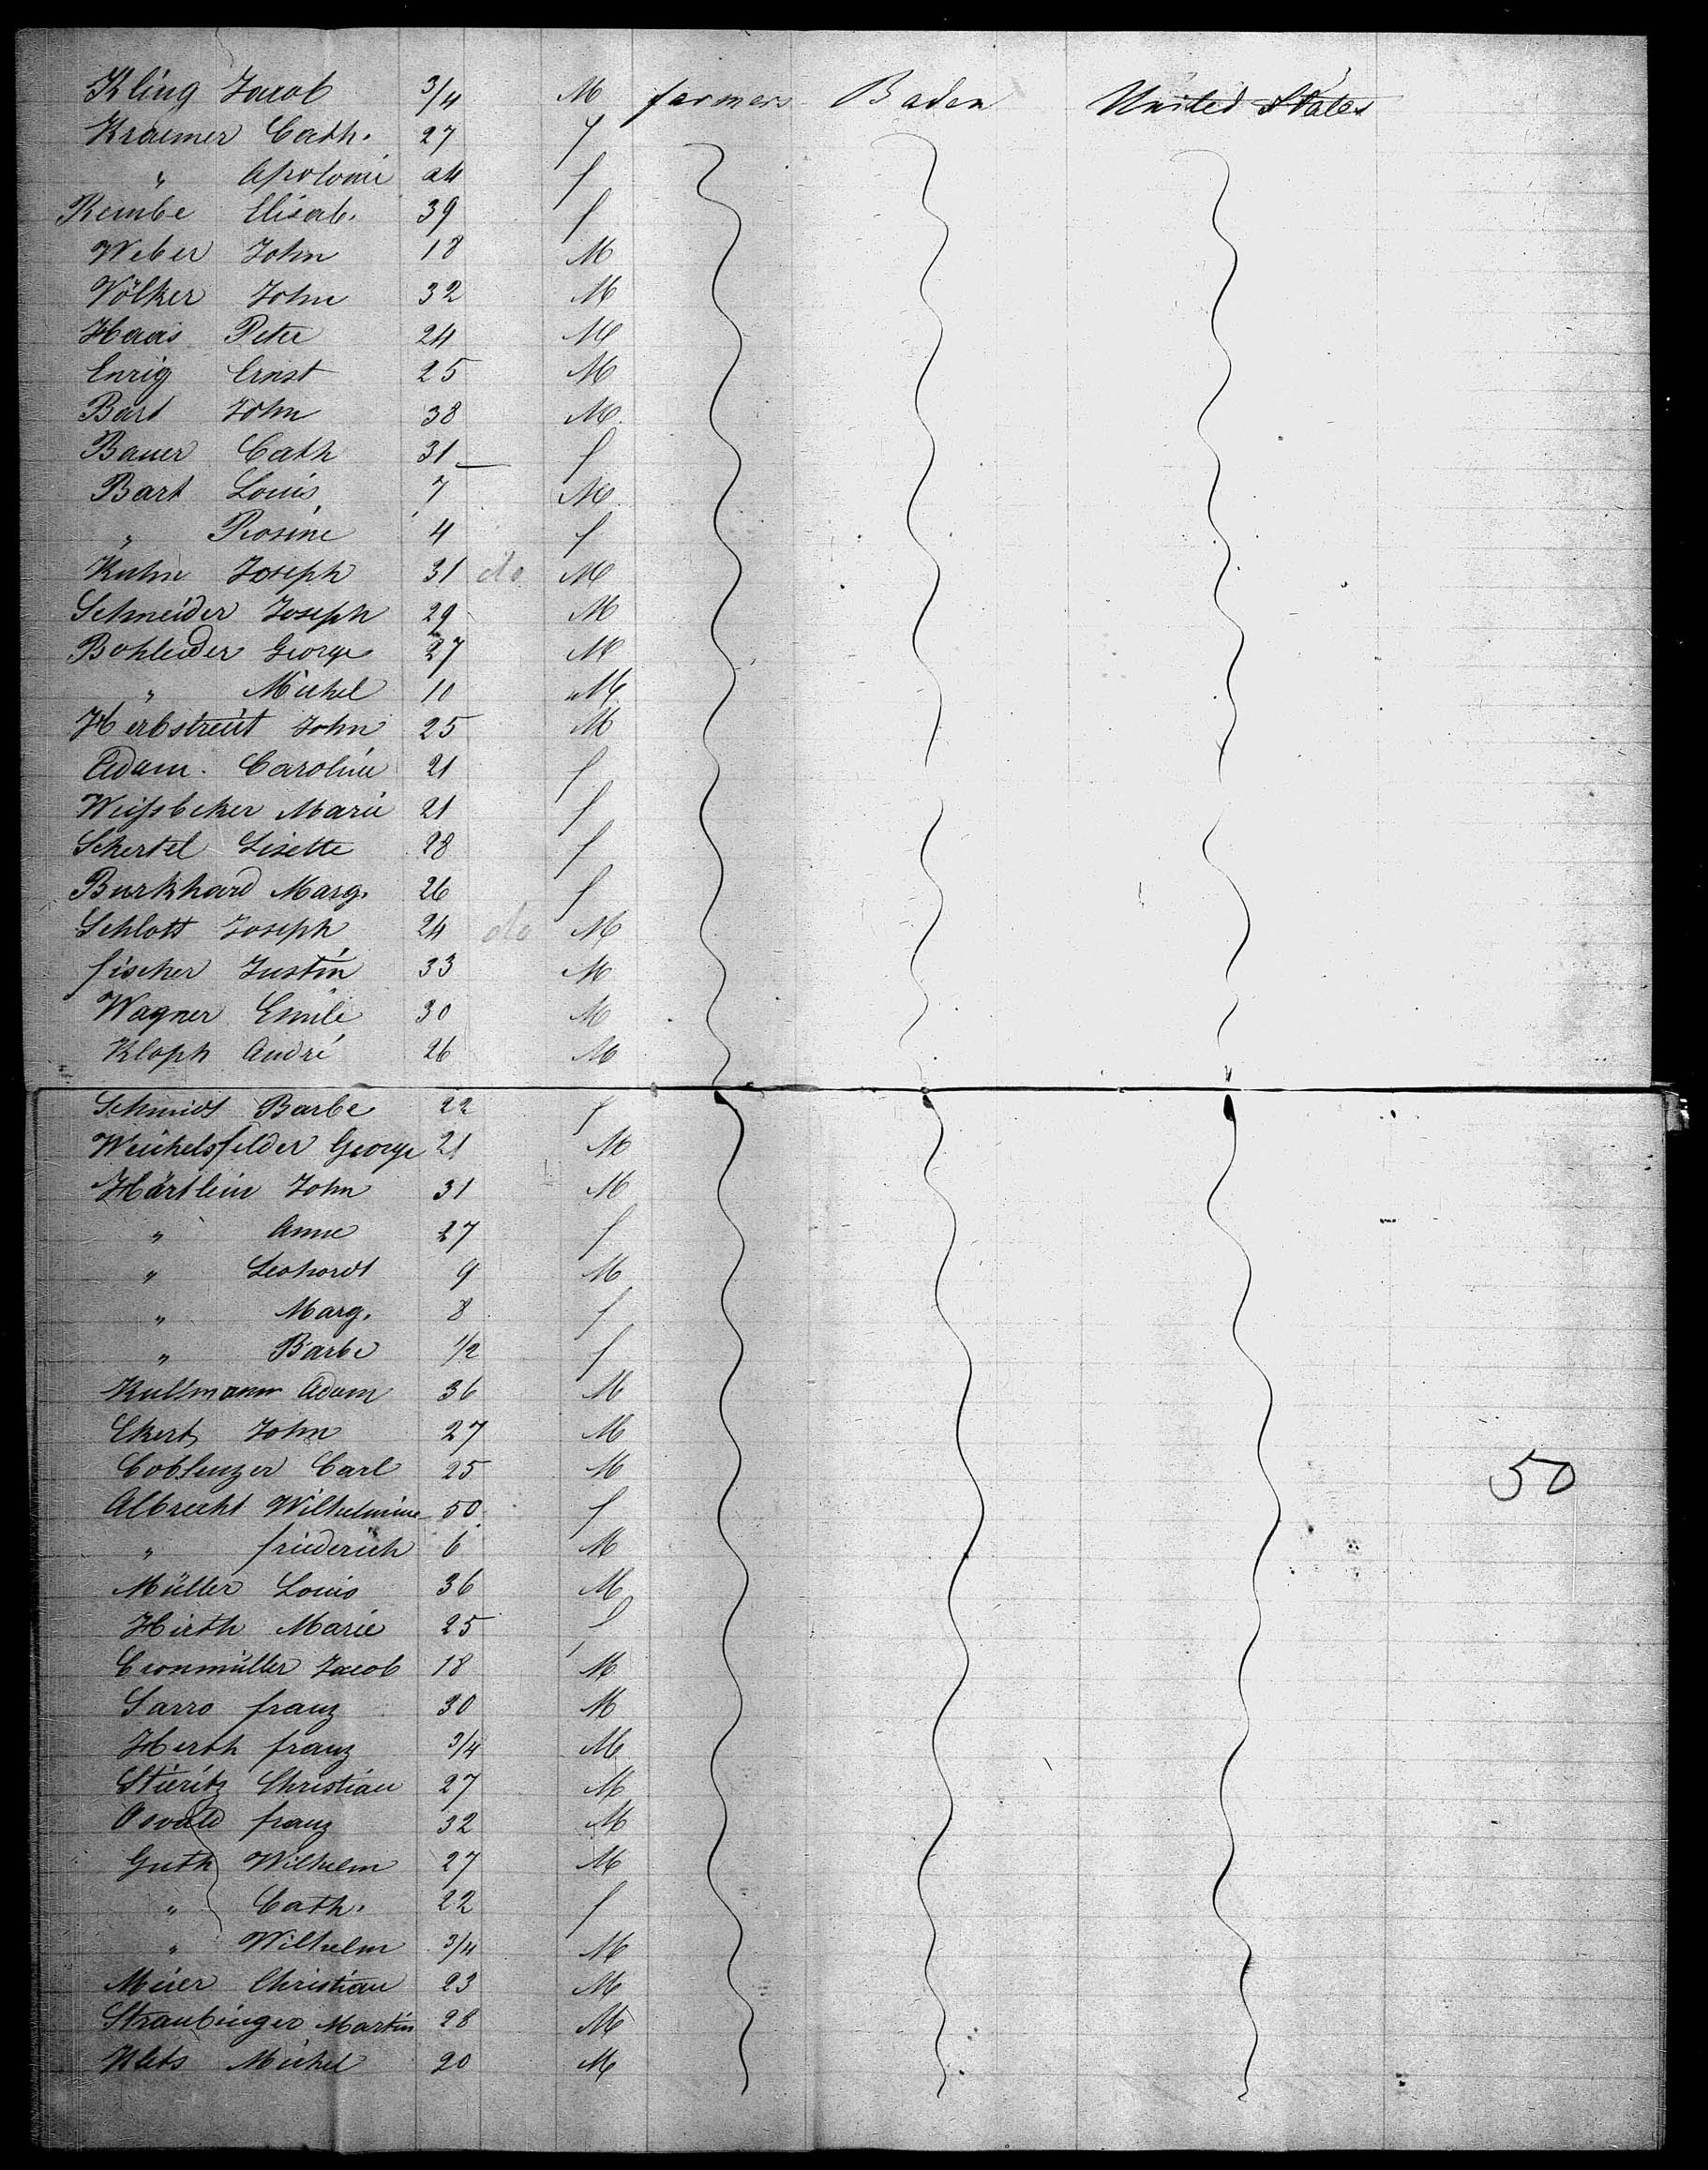 Kling Jacob 3/4 M farmers Baden United States
Kraemer Cath. 27 f
" Apolonie 24 f
Rembe Elisab. 39 f
Weber John 18 M
Völker John 32 M
Haas Peter 24 M
Enrig Ernst 25 M
Bart John 38 M
Bauer Cath 31 f
Bart Louis 7 M
" Rosine 4 f
Kuhn Joseph 31 do M
Schneider Joseph 29 M
Bohleider George 27 M
" Michel 10 M
Herbstreut John 25 M
Adam Caroline 21 f
Weissbeker Marie 21 f
Schertel Lisette 28 f
Burkhard Marg. 26 f
Schlott Joseph 24 do M
fischer Justin 33 M
Wagner Emile 30 M
Kloph André 26 M
Schmidt Barbe 22 f
Weichelsfelder George 21 M
Härtlein John 31 M
" Anne 27 f
" Leohardt 9 M
" Marg. 8 f
" Barbe 1/2 f
Kullmann Adam 36 M
Ekert John 27 M
Coblenzer Carl 25 M
50
Albrecht Wilhelmine 50 f
" friederich 6 M
Müller Louis 36 M
Hirth Marie 25 f
Cronmüller Jacob 18 M
Sarro franz 30 M
Herth franz 3/4 M
Stieritz Christian 27 M
Osvald franz 32 M
Guth Wilhelm 27 M
" Cath. 22 f
" Wilhelm 3/4 M
Meier Christian 23 M
Straubinger Martin 28 M
Klets Michel 20 M